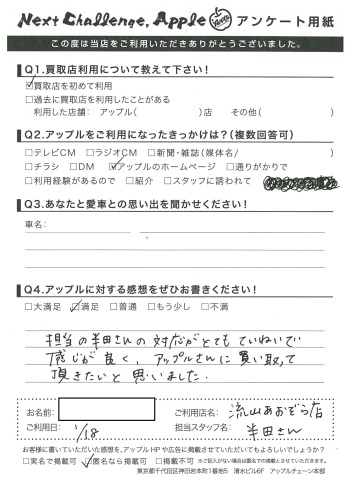 Next Challenge, Apple アンケート用紙
この度は当店をご利用いただきありがとうございました。
Q1.買取店利用について教えて下さい!
☑買取店を初めて利用
□過去に買取店を利用したことがある
利用した店舗: アップル( )店 その他( )
Q2.アップルをご利用になったきっかけは?(複数回答可)
□テレビCM □ラジオCM □新聞・雑誌(媒体名/ )
□チラシ □DM ☑アップルのホームページ □通りがかりで
□利用経験があるので □紹介 □スタッフに誘われて
Q3.あなたと愛車との思い出を聞かせください!
車名:
Q4.アップルに対する感想をぜひお書きください!
□大満足 ☑満足 □普通 □もう少し □不満
担当の半田さんの対応がとてもていねいで
感じが良く、アップルさんに買い取って
頂きたいと思いました。
お名前: ご利用店名: 流山あおぞら店
ご利用日: 1/18 担当スタッフ名: 半田さん
お客様に書いていただいた感想を、アップルHPや広告に掲載させていただいてもよろしいでしょうか?
□実名で掲載可 ☑匿名なら掲載可 □掲載不可 ※ご記入がない場合は匿名での掲載とさせていただきます。
東京都千代田区神田岩本町1番地5 清水ビル6F アップルチェーン本部